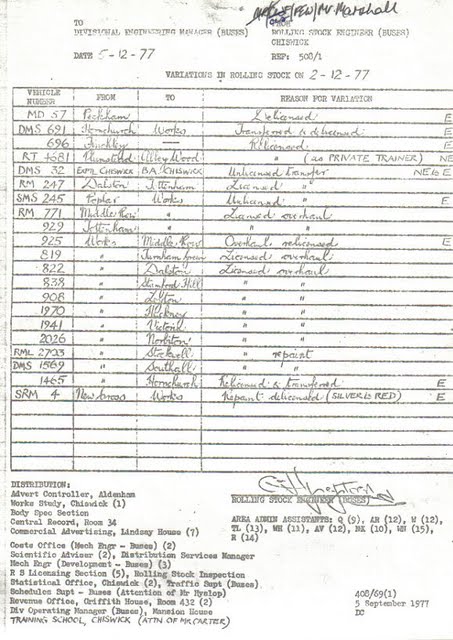 TO
FROM
DIVISIONAL ENGINEERING MANAGER (BUSES)
ROLLING STOCK ENGINEER (BUSES)
CHISWICK
DATE 5-12-77
REF: 508/1
VARIATIONS IN ROLLING STOCK ON 2-12-77
VEHICLE NUMBER FROM TO REASON FOR VARIATION
MD 57 Peckham Delicensed E
DMS 691 Hornchurch Works Transferred & delicensed E
696 Finchley —— Relicensed
RT 4681 Plumstead Abbey Wood " (as PRIVATE TRAINER) NE
DMS 32 EXPTL CHISWICK B.A. CHISWICK Unlicensed transfer NE to E
RM 247 Dalston Tottenham Licensed "
SMS 245 Poplar Works Unlicensed " E
RM 771 Middle Row " Licensed overhaul
929 Tottenham " "
925 Works Middle Row Overhaul, relicensed E
819 " Turnham Green Licensed overhaul
822 " Dalston Licensed overhaul
838 " Stamford Hill " "
908 " Leyton " "
1970 " Hackney " "
1941 " Victoria " "
2026 " Norbiton " "
RML 2703 " Stockwell " repaint
DMS 1569 " Southall " "
1465 " Hornchurch Relicensed & transferred E
SRM 4 New Cross Works Repaint delicensed (SILVER to RED) E
DISTRIBUTION:
Advert Controller, Aldenham
Works Study, Chiswick (1)
Body Spec Section
Central Record, Room 34
Commercial Advertising, Lindsey House (7)
Costs Office (Mech Engr - Buses) (2)
Scientific Adviser (2), Distribution Services Manager
Mech Engr (Development - Buses) (3)
R S Licensing Section (5), Rolling Stock Inspection
Statistical Office, Chiswick (2), Traffic Supt (Buses)
Schedules Supt - Buses (Attention of Mr Hyslop)
Revenue Office, Griffith House, Room 432 (2)
Div Operating Manager (Buses), Mansion House
TRAINING SCHOOL, CHISWICK (ATTN OF MR CARTER)
ROLLING STOCK ENGINEER (BUSES)
AREA ADMIN ASSISTANTS: Q (9), AR (12), W (12),
TL (13), WH (11), AV (12), NX (10), WN (15),
R (14)
408/69(1)
5 September 1977
DC